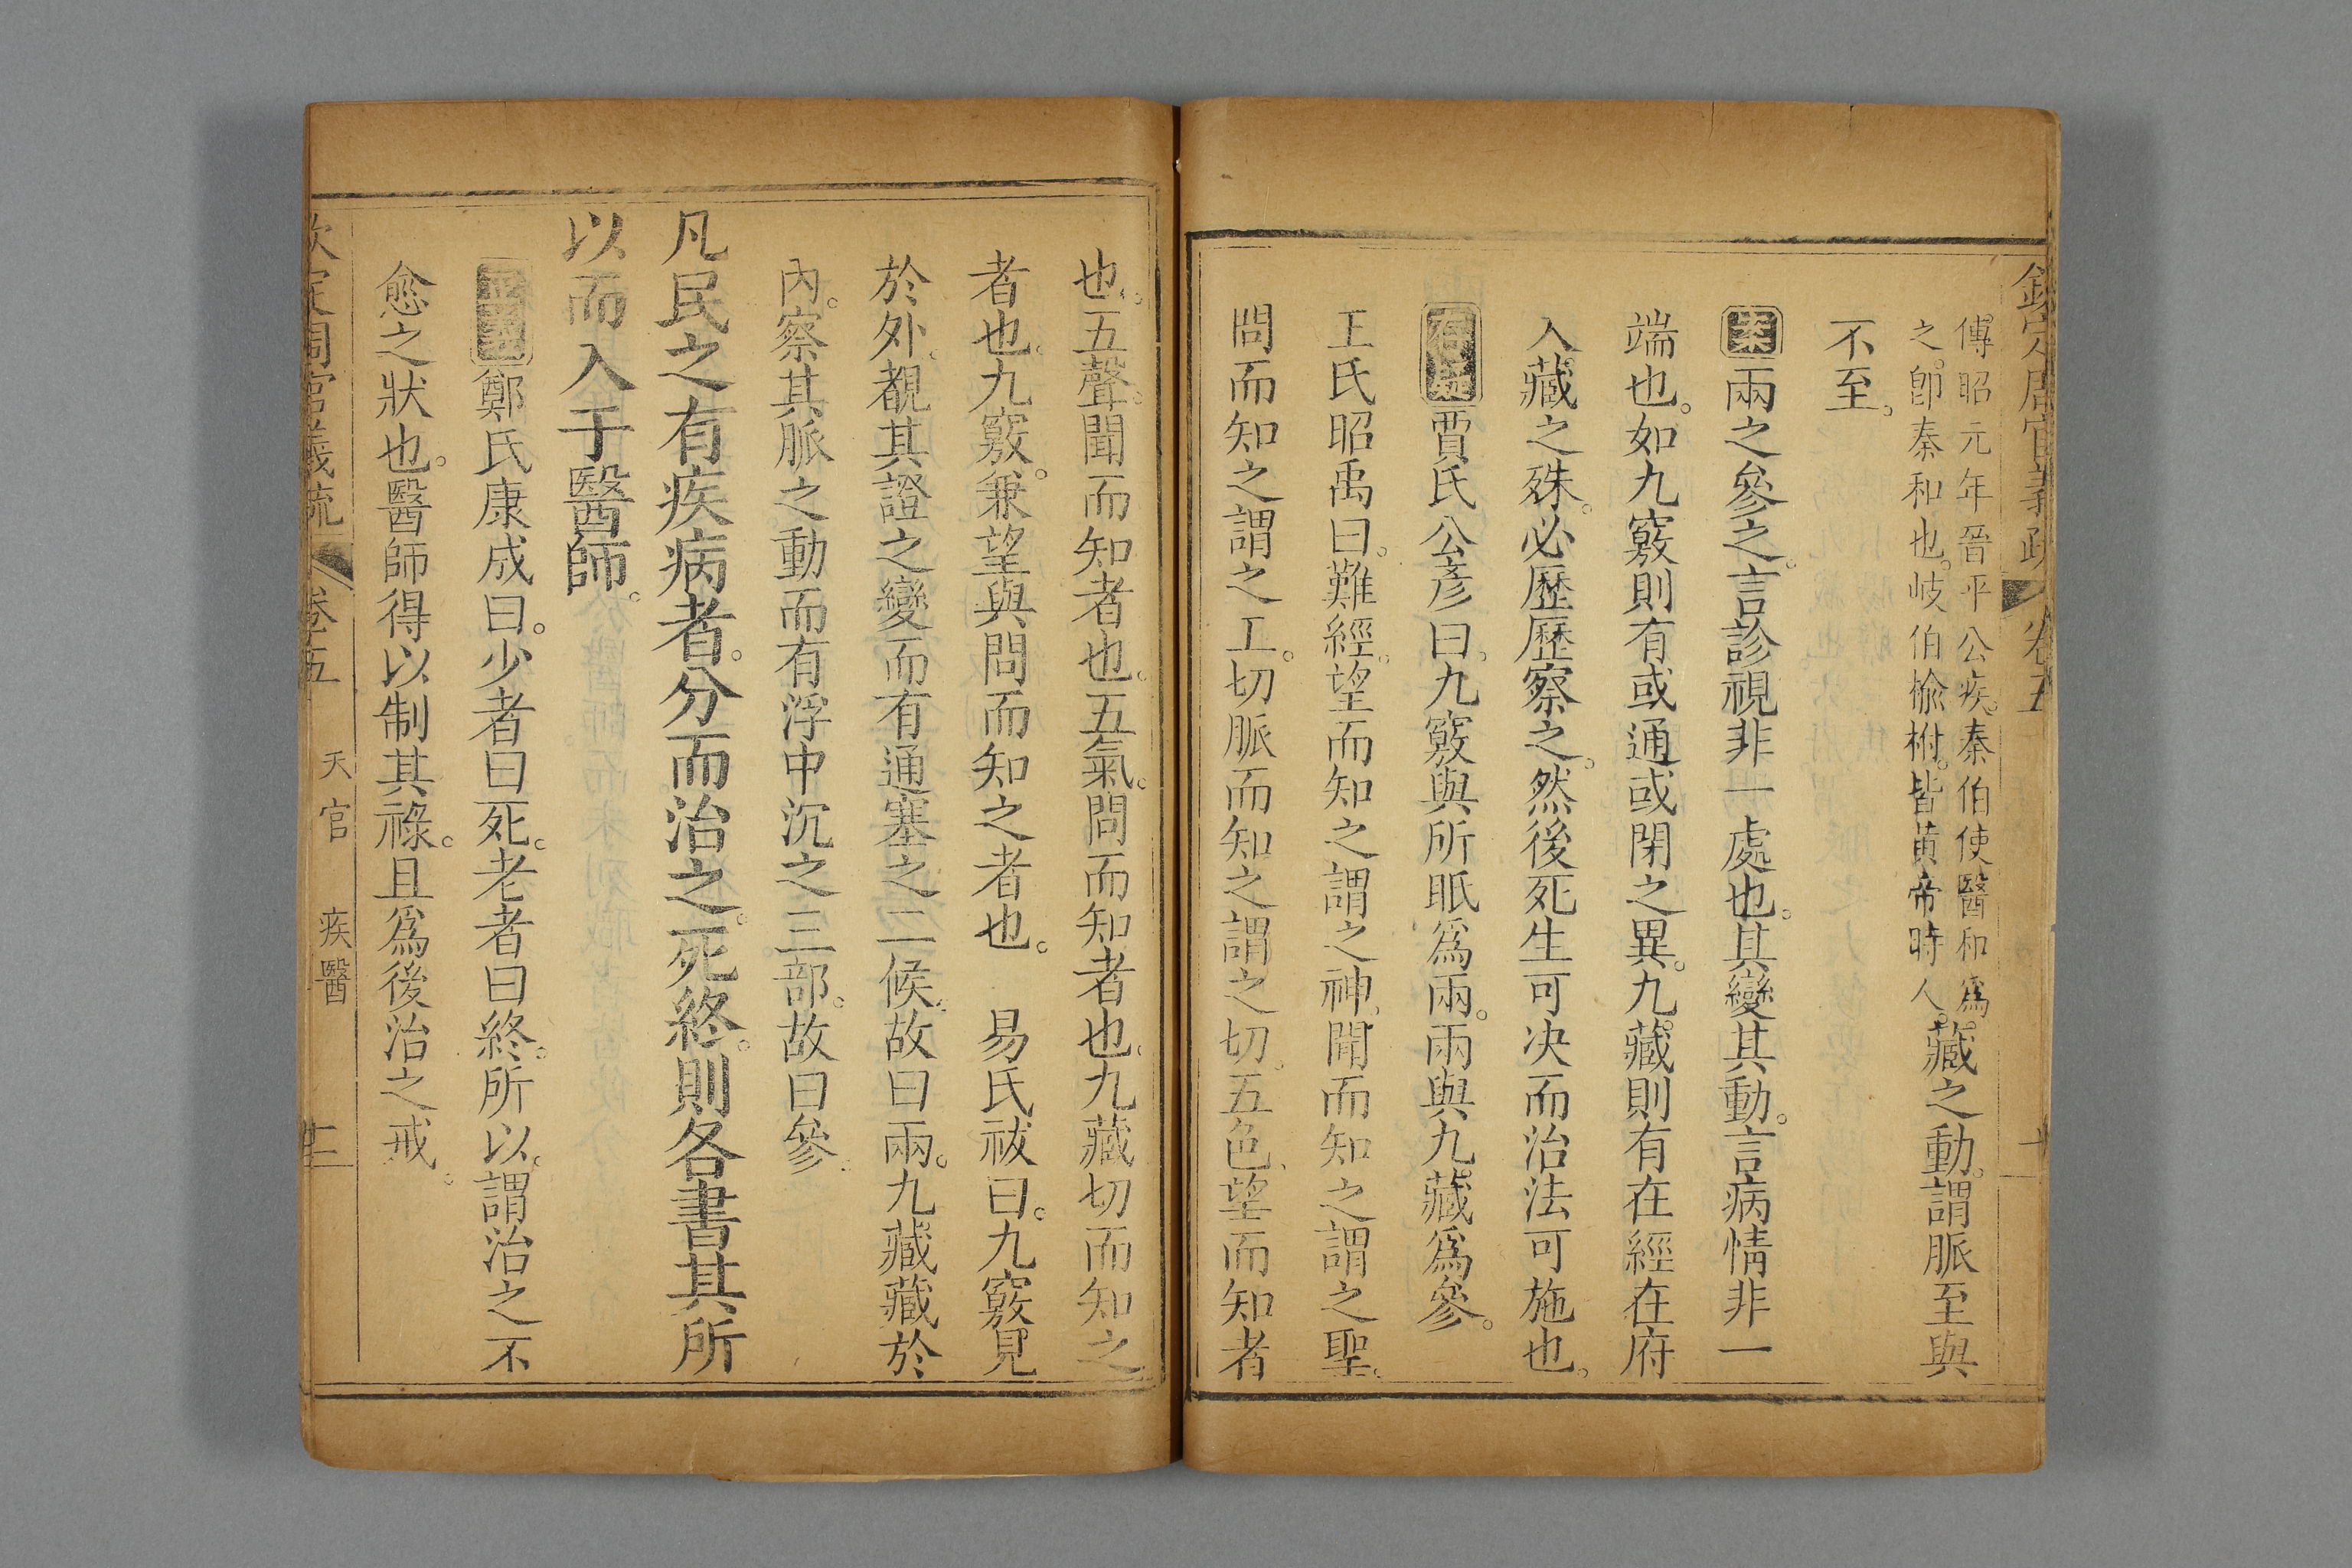 欽定周官義疏 卷五
傳昭元年晉平公疾。秦伯使醫和爲
之。卽秦和也。岐伯揄柎。皆黃帝時人。
藏之動。謂脈至與
不至。
案兩之參之。言診視非一處也。其變其動。言病情非一
端也。如九竅則有或通或閉之異。九藏則有在經在府
入藏之殊。必歷歷察之。然後死生可决而治法可施也。
存疑賈氏公彥曰。九竅與所眂爲兩。兩與九藏爲參。
王氏昭禹曰。難經。望而知之謂之神。聞而知之謂之聖。
問而知之謂之工。切脈而知之謂之切。五色。望而知者
也。五聲。聞而知者也。五氣。問而知者也。九藏切而知之
者也。九竅。兼望與問而知之者也。 易氏祓曰。九竅見
於外。覩其證之變而有通塞之二候。故曰兩。九藏藏於
內。察其脈之動而有浮中沉之三部。故曰參。
凡民之有疾病者。分而治之。死終。則各書其所
以而入于醫師。
鄭氏康成曰。少者曰死。老者曰終。所以。謂治之不
愈之狀也。醫師得以制其祿。且爲後治之戒。
欽定周官義疏 卷五 天官 疾醫